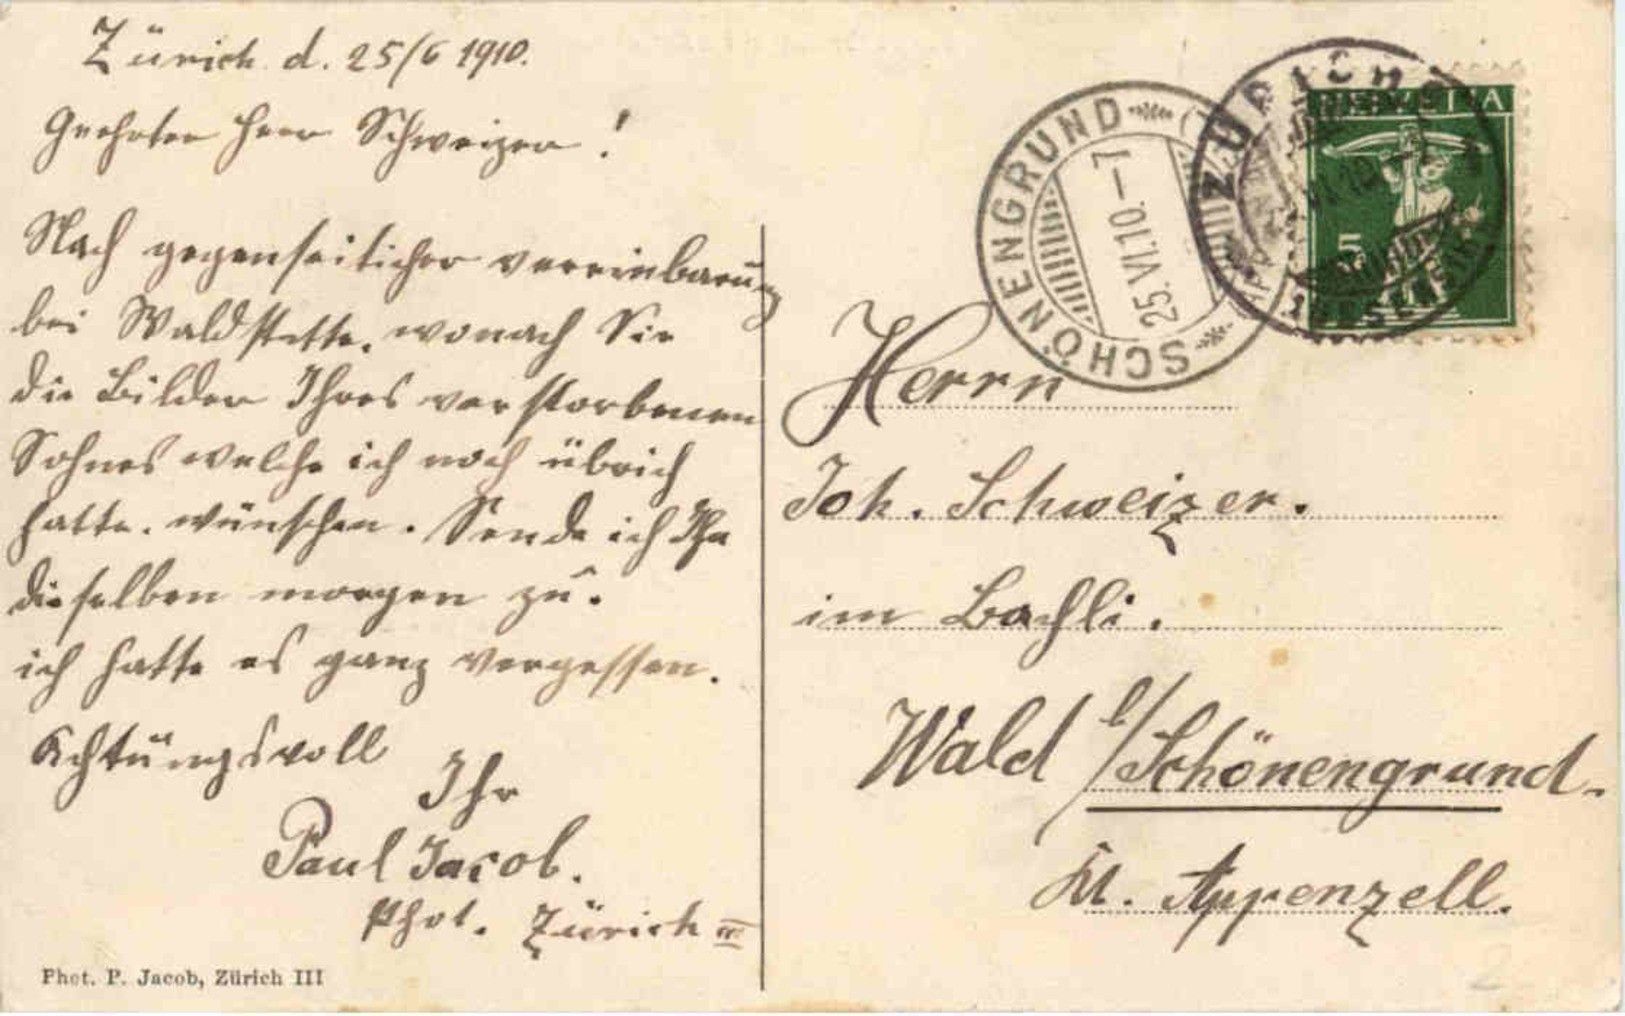 Zürich d. 25/6 1910.
Geehrter Herr Schweizer!
Nach gegenseitiger vereinbarung
bei Waldstatt, wonach Sie
die Bilder Ihres verstorbenen
Sohnes welche ich noch übrich
hatte, wünschen. Sende ich Ihn
dieselben morgen zu.
ich hatte es ganz vergessen.
Achtungsvoll
Ihr
Paul Jacob.
Phot. Zürich III
Phot. P. Jacob, Zürich III
SCHÖNENGRUND
25.VI.10.–7
ZÜRICH
HELVETIA
5
Herrn
Joh. Schweizer.
im Bächli.
Wald b/Schönengrund.
Kt. Appenzell.
2